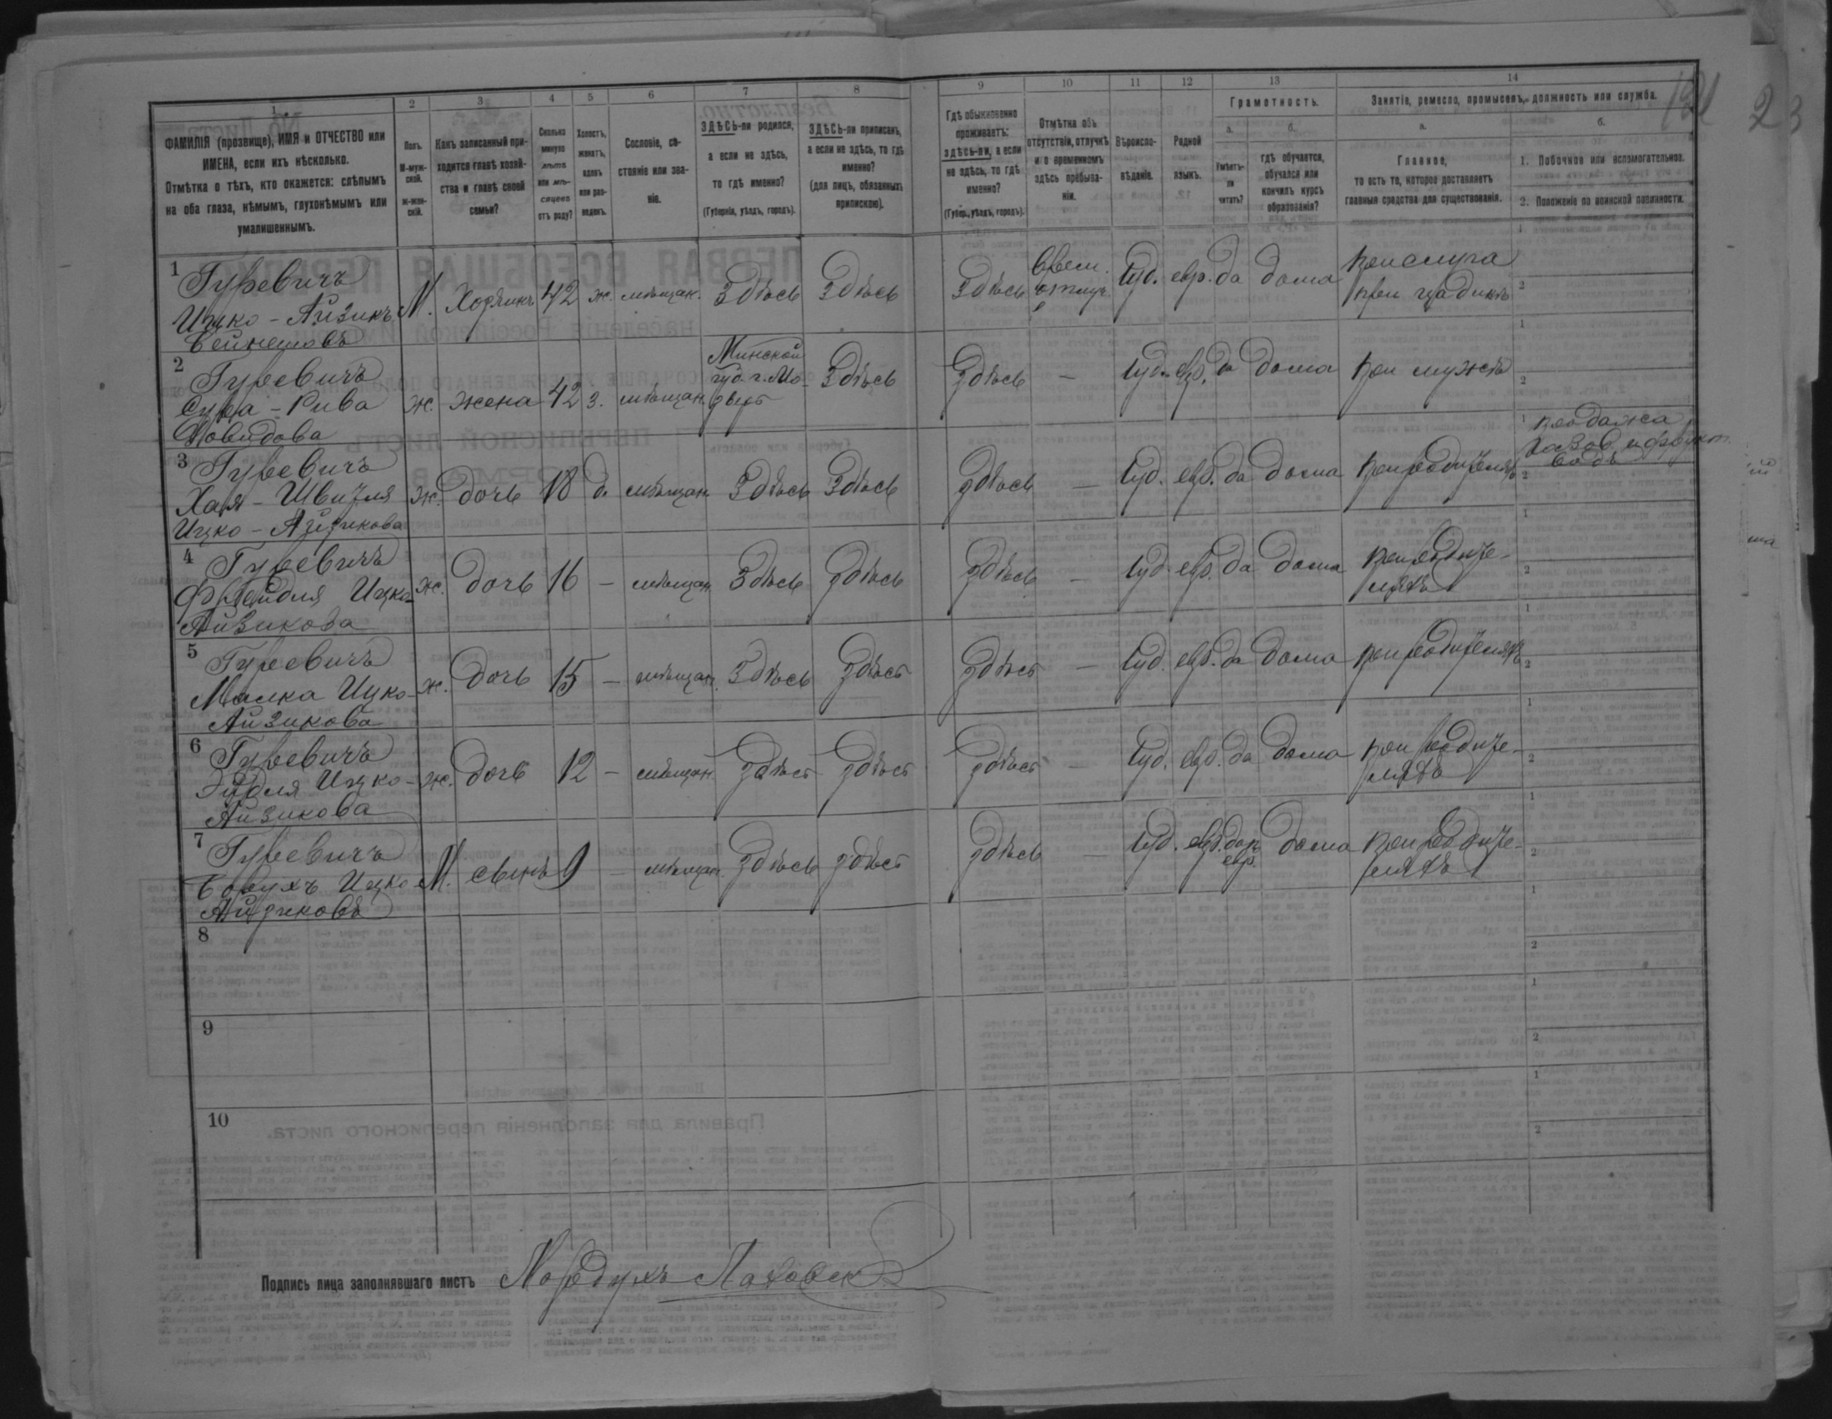 1
2
3
4
5
6
7
8
9
10
11
12
13
14
ФАМИЛІЯ (прозвище), ИМЯ и ОТЧЕСТВО или
ИМЕНА, если ихъ нѣсколько.
Отмѣтка о тѣхъ, кто окажется: слѣпымъ
на оба глаза, нѣмымъ, глухонѣмымъ или
умалишеннымъ.
Полъ.
М-муж-
ской.
ж-жен-
скій.
Какъ записанный при-
ходится главѣ хозяй-
ства и главѣ своей
семьи?
Сколько
минуло
лѣтъ
или мѣ-
сяцевъ
отъ роду?
Холостъ,
женатъ,
вдовъ
или раз-
веденъ.
Сословіе, со-
стояніе или зва-
ніе.
ЗДѢСЬ-ли родился,
а если не здѣсь,
то гдѣ именно?
(Губернія, уѣздъ, городъ).
ЗДѢСЬ-ли приписанъ,
а если не здѣсь, то гдѣ
именно?
(для лицъ, обязанныхъ
припискою).
Гдѣ обыкновенно
проживаетъ:
здѣсь-ли, а если
не здѣсь, то гдѣ
именно?
(Губерн., уѣздъ, городъ).
Отмѣтка объ
отсутствіи, отлучкѣ
и о временномъ
здѣсь пребыва-
ніи.
Вѣроиспо-
вѣданіе.
Родной
языкъ.
Грамотность.
а.
б.
Умѣетъ-
ли
читать?
гдѣ обучается,
обучался или
кончилъ курсъ
образованія?
Занятіе, ремесло, промыселъ, должность или служба.
а.
б.
Главное,
то есть то, которое доставляетъ
главныя средства для существованія.
1. Побочное или вспомогательное.
2. Положеніе по воинской повинности.
23
1
Гуревичъ
Ицко - Айзикъ
Бейнешовъ
М. Хозяинъ 42 ж. мѣщан. Здѣсь Здѣсь
Здѣсь
Іуд. евр. да дома
прислуга
при цадикѣ
2
Гуревичъ
Сура - Рива
Довидова
ж. жена 42 з. мѣщан.
Минской
губ. г. Мо-
зырь
Здѣсь
Здѣсь - Іуд. евр. да дома при мужѣ
3
Гуревичъ
Хая - Швидля
Ицко - Айзикова
ж. дочь 18 д. мѣщан. Здѣсь Здѣсь
Здѣсь - Іуд. евр. да дома при родителяхъ
продажа
газов. и фрукт.
водъ
4
Гуревичъ
Фрейдля Ицко-
Айзикова
ж. дочь 16 - мѣщан. Здѣсь здѣсь
здѣсь - Іуд. евр. да дома при родите-
ляхъ
5
Гуревичъ
Малка Ицко-
Айзикова
ж. дочь 15 - мѣщан. Здѣсь здѣсь
здѣсь - Іуд. евр. да дома при родителяхъ
6
Гуревичъ
Ицко-
Айзикова
ж. дочь 12 - мѣщан. здѣсь здѣсь
здѣсь - Іуд. евр. да дома при родите-
ляхъ
7
Гуревичъ
Борухъ Ицко-
Айзиковъ
М. сынъ 9 - мѣщан. здѣсь здѣсь
здѣсь - Іуд. евр. да
евр.
дома при родите-
ляхъ
8
9
10
Подпись лица заполнявшаго листъ
Мордухъ